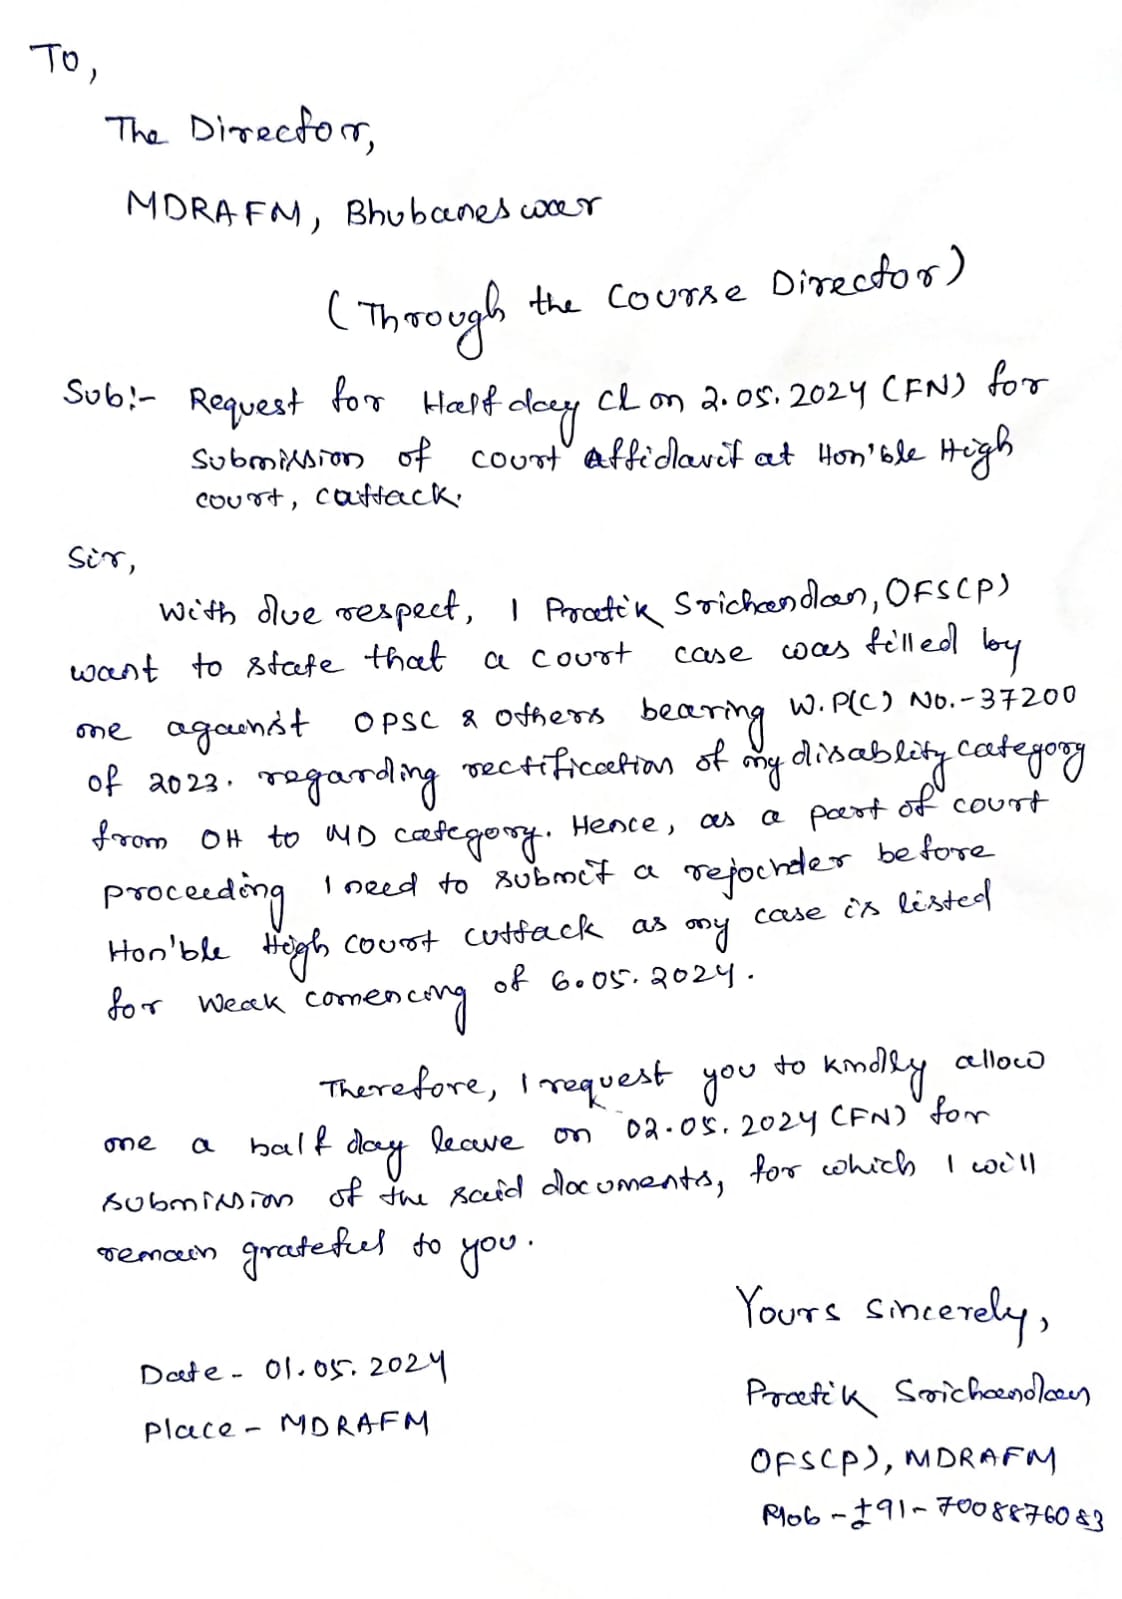 To,
The Director,
MDRAFM, Bhubaneswar
(Through the Course Director)
Sub:- Request for Half day CL on 2.05.2024 (FN) for
submission of court affidavit at Hon'ble High
court, cuttack.
Sir,
With due respect, I Pratik Srichandan, OFS(P)
want to state that a court case was filled by
me against OPSC & others bearing W.P(C) No.-37200
of 2023. regarding rectification of my disablity category
from OH to MD category. Hence, as a part of court
proceeding I need to submit a rejoinder before
Hon'ble High court cuttack as my case is listed
for weak comencing of 6.05.2024.
Therefore, I request you to kindly allow
me a half day leave on 02.05.2024 (FN) for
submission of the said documents, for which I will
remain grateful to you.
Yours sincerely,
Date - 01.05.2024
Pratik Srichandan
Place - MDRAFM
OFS(P), MDRAFM
Mob - +91-7008876083